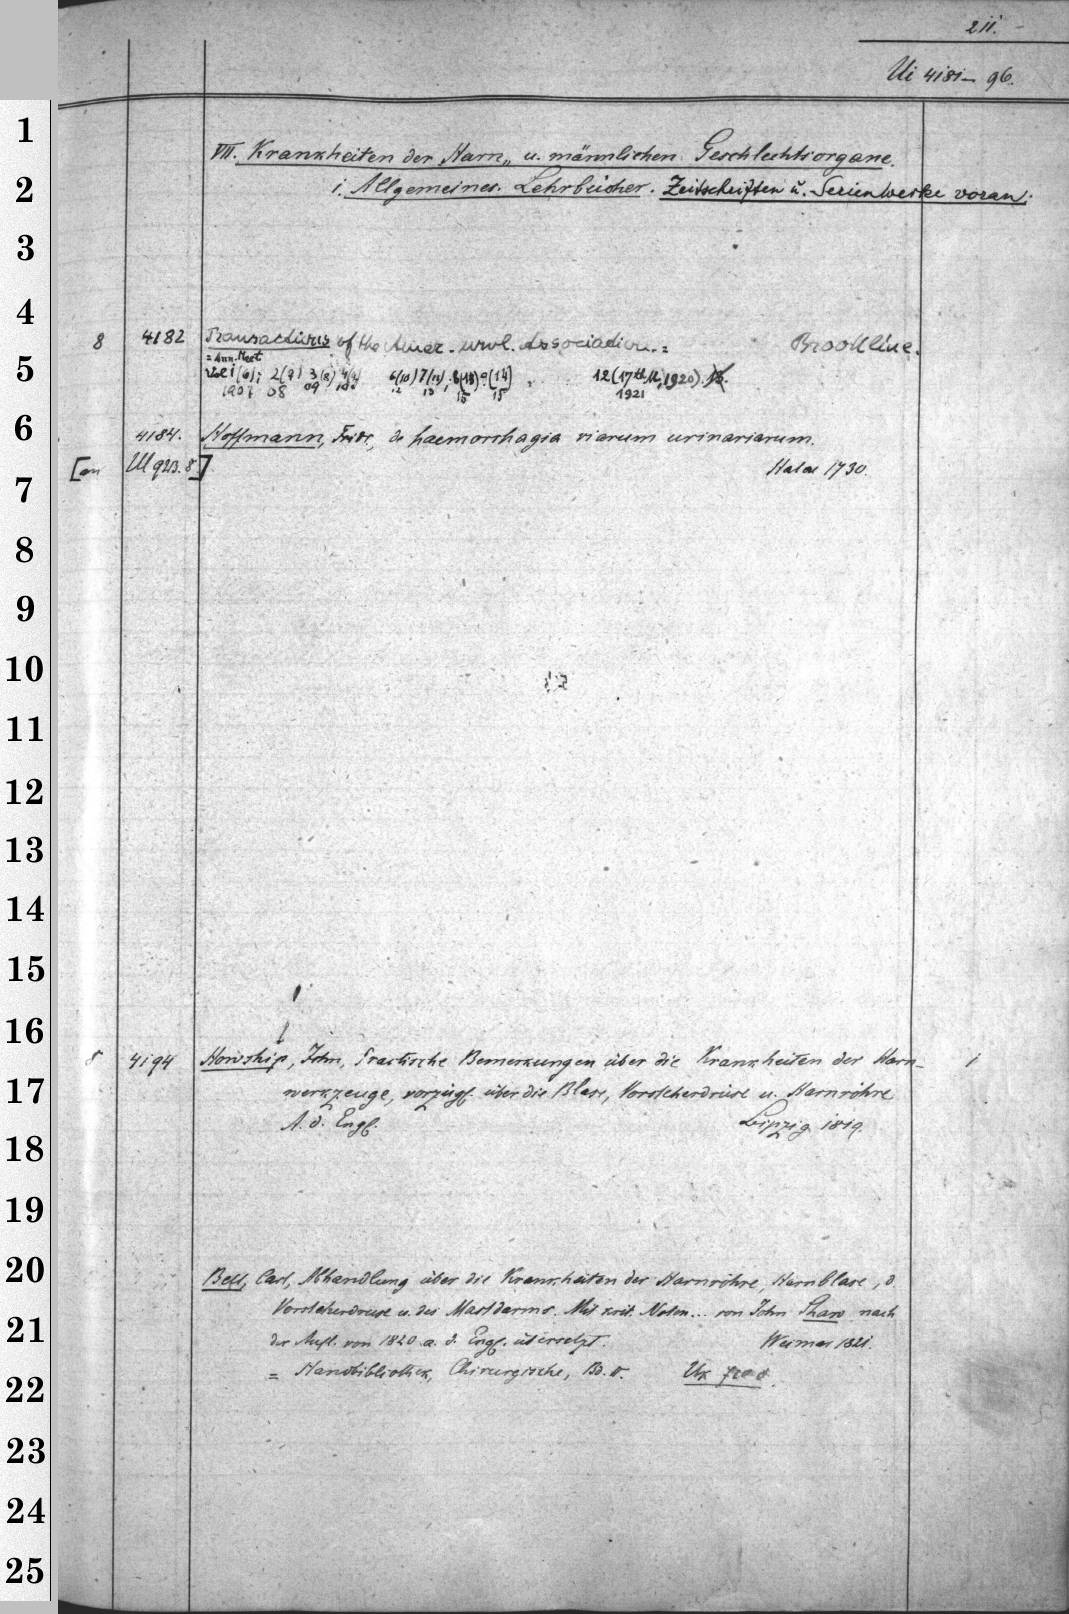 211.
Ui 4181-96.
VII. Krankheiten der Harn- u. männlichen Geschlechtsorgane.
1. Allgemeines. Lehrbücher. Zeitschriften u. Serienwerke voran.
8 4182 Transactions of the Amer. urol. Association. = Brookline.
= Ann. Meet
Vol 1(6); 2(7) 3(8) 4(9) 6(10) 7(11), 8(13) 9(14) 12(17th M. 1920).
1907 08 09 10 12 13 15 15 1921
4184. Hoffmann, Fridr., de haemorrhagia viarum urinariarum.
[an Ul 923. 8.] Halae 1730.
8 4194 Howship, John, Practische Bemerkungen über die Krankheiten der Harn- 1
werkzeuge, vorzügl. über die Blase, Vorsteherdrüse u. Harnröhre
A. d. Engl. Leipzig 1819.
Bell, Carl, Abhandlung über die Krankheiten der Harnröhre, Harnblase, d.
Vorsteherdrüse u. des Mastdarms. Mit krit. Noten... von John Shaw nach
der Aufl. von 1820 a. d. Engl. übersetzt. Weimar 1821.
= Handbibliothek, Chirurgische, Bd.